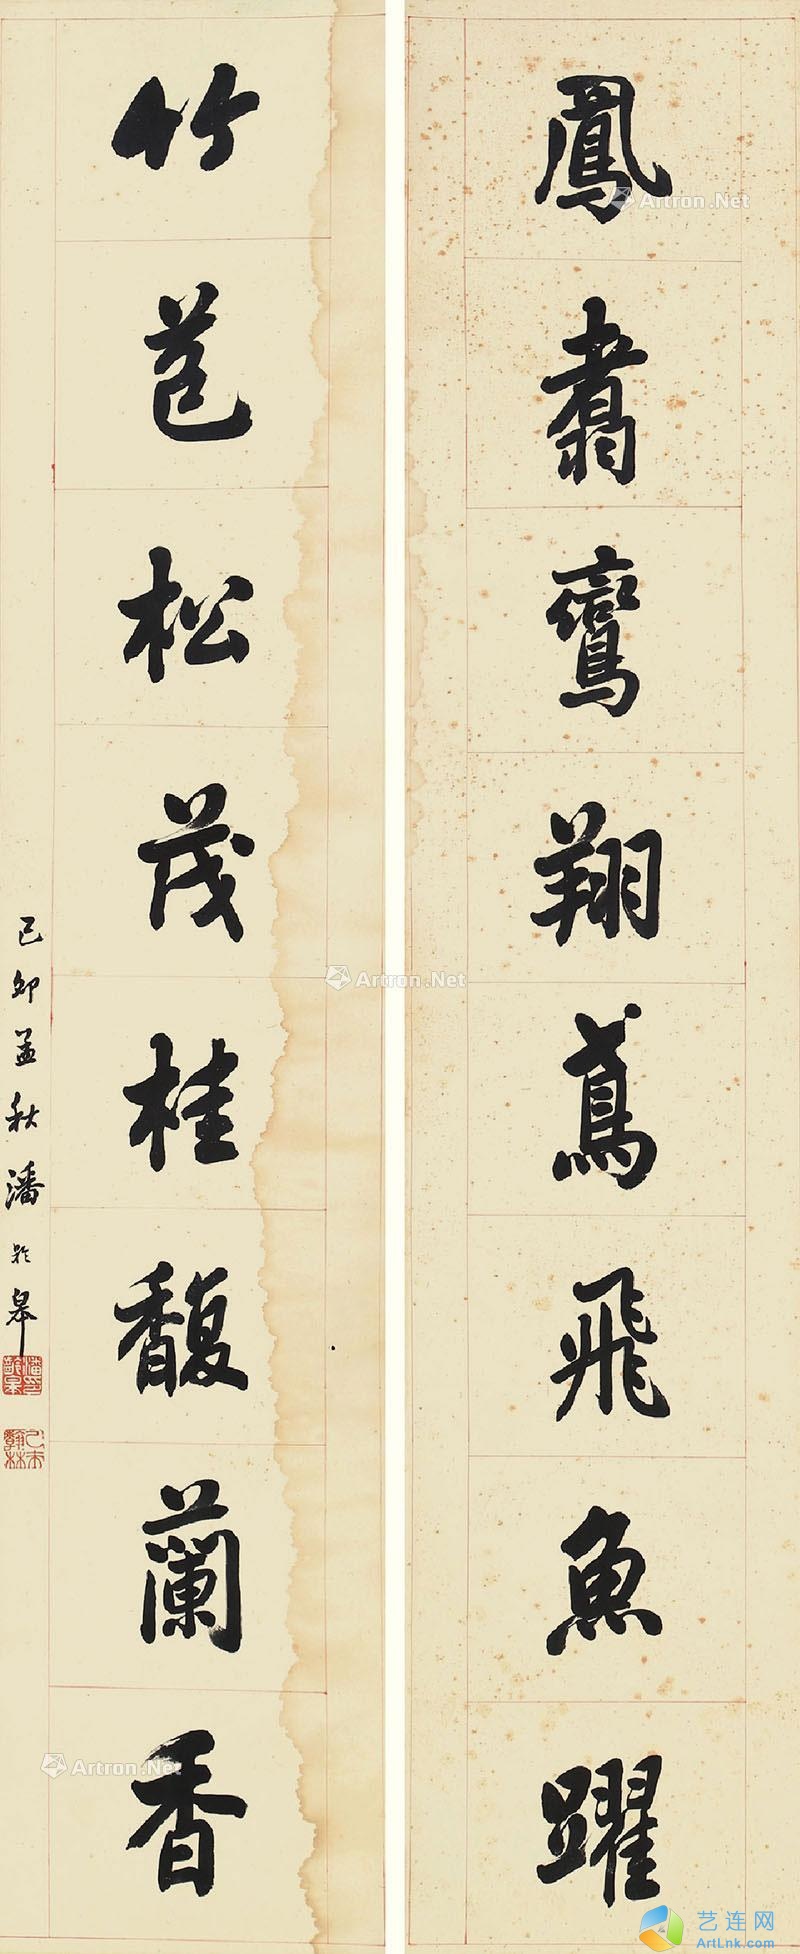 鳳翥鸞翔鳶飛魚躍
竹苞松茂桂馥蘭香
己卯孟秋潘齡皋
潘齡皋印
乙未翰林
Artron.Net
Artron.Net
Artron.Net
艺连网
ArtLnk.com